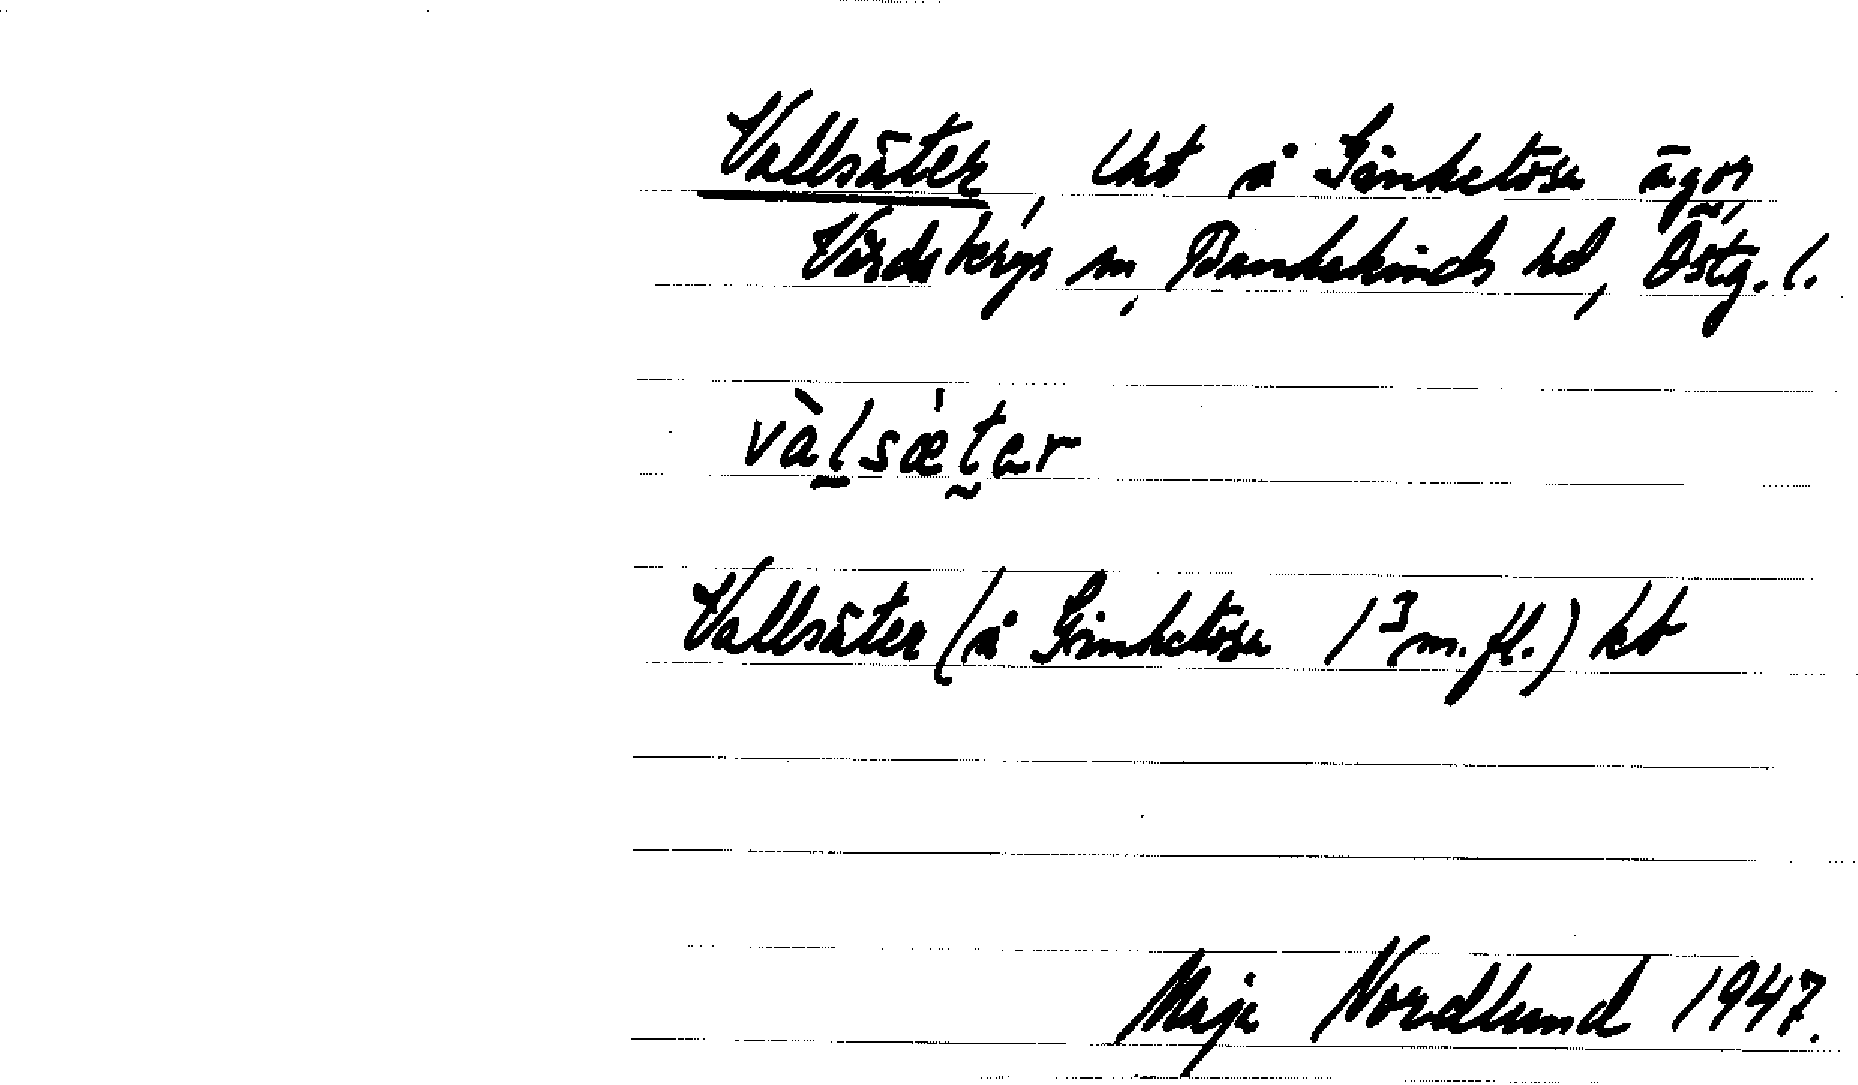 Vallsäter, lht å Sinketöse ägor,
Vårdsbergs sn, Bankekinds hd, Östg. l.
vàlsætar
Vallsäter (å Sinketöse 1³ m. fl.) ht
Maja Nordlund 1947.